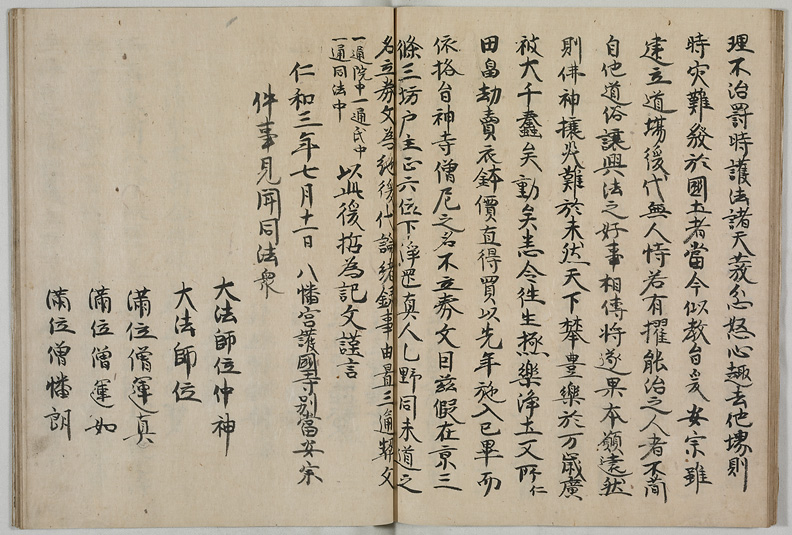 理不治罰時護法諸天發忿怒心趣去他塲則
時灾難發於國土者當今似教旨爰安宗雖
建立道場後代無人恃若有擢能治之人者不簡
自他道俗讓興法之好事相傳將遂果本願遠然
則佛神攘災難於未然天下攀豊樂於万歲廣
被大千蠢矣動矣悉令徃生極樂淨土又所仁
田畠劫賣衣鉢價直得買以先年施入已畢而
依格旨神寺僧尼之名不立券文因茲假在京三
條三坊戸主正六位下淨原真人乙野同未道之
名立券文為絶後代論緒錄事由置三通辞文
一通院中一通氏中
一通同法中
以此後括為記文謹言
仁和三年七月十一日 八幡宮護國寺別當安宗
件事見聞同法衆
大法師位仲神
大法師位
滿位僧運真
滿位僧運如
滿位僧幡朗